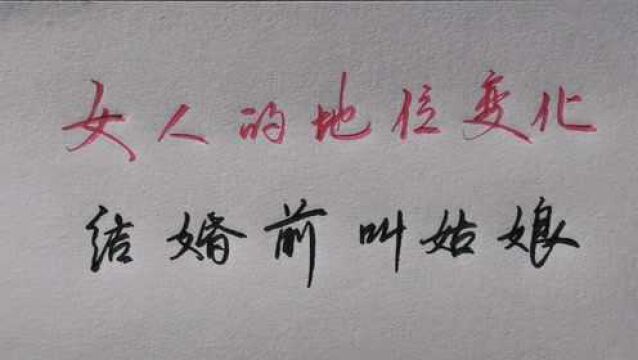 女人的地位变化
结婚前叫姑娘